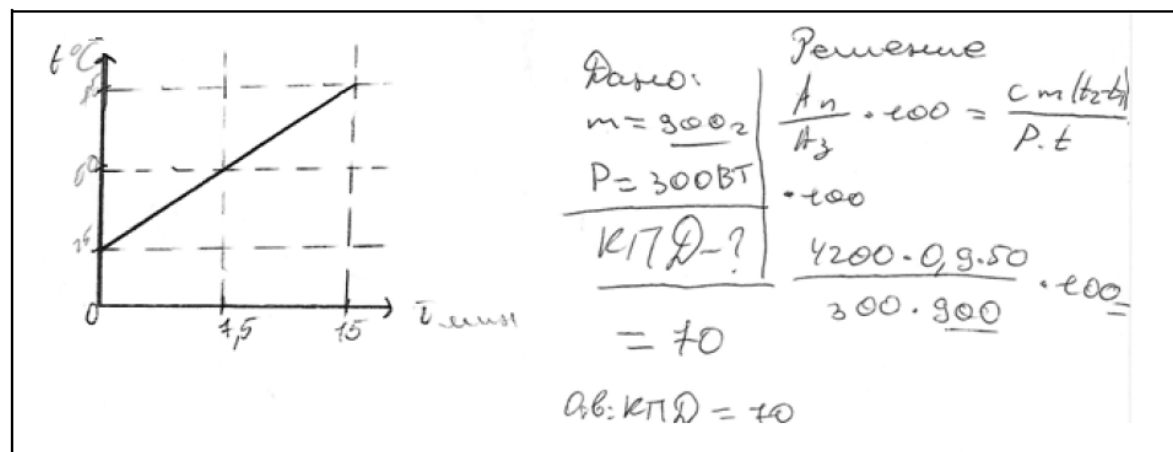 t°C
50
25
0
7,5
15
τ мин
Дано:
m = 900г
P = 300ВТ
КПД-?
= 70
Решение
Aп/Aз · 100 = cm(t₂-t₁)/P.t
· 100
4200 · 0,9 · 50/300 · 900 · 100 =
Отв: КПД = 70